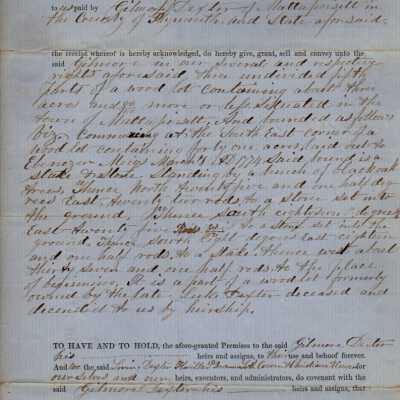 to us paid by Gilmore Dexter of Mattapoisett in
the County of Plymouth and State aforesaid
the receipt whereof is hereby acknowledged, do hereby give, grant, sell and convey unto the
said Gilmore in our several and respective
rights aforesaid three undivided fifth
parts of a wood lot containing about three
acres and more or less situated in the
town of Mattapoisett, And bounded as follows
Viz, Commencing at the South East corner of a
wood lot containing forty one acres, laid out to
Ebenezer March 4 AD 1774 Said bound is a
stake & stone Standing by a bunch of black oak
trees, Thence North twenty five and one half deg
rees East, twenty two rods, to a stone set into
the ground, Thence South eighteen degrees
East twenty five rods to a stone set into the
ground, Thence South Eight degrees East eighteen
and one half rods to a Stake, thence west about
thirty seven and one half rods, to the place
of beginning. It is a part of a wood lot formerly
owned by the late Dexter deceased and
descended to us by heirship.
TO HAVE AND TO HOLD, the afore-granted Premises to the said Gilmore Dexter
his heirs and assigns, to their use and behoof forever.
And we the said Dexter for
our selves and our heirs, executors, and administrators, do covenant with the
said Gilmore Dexter his heirs and assigns, that